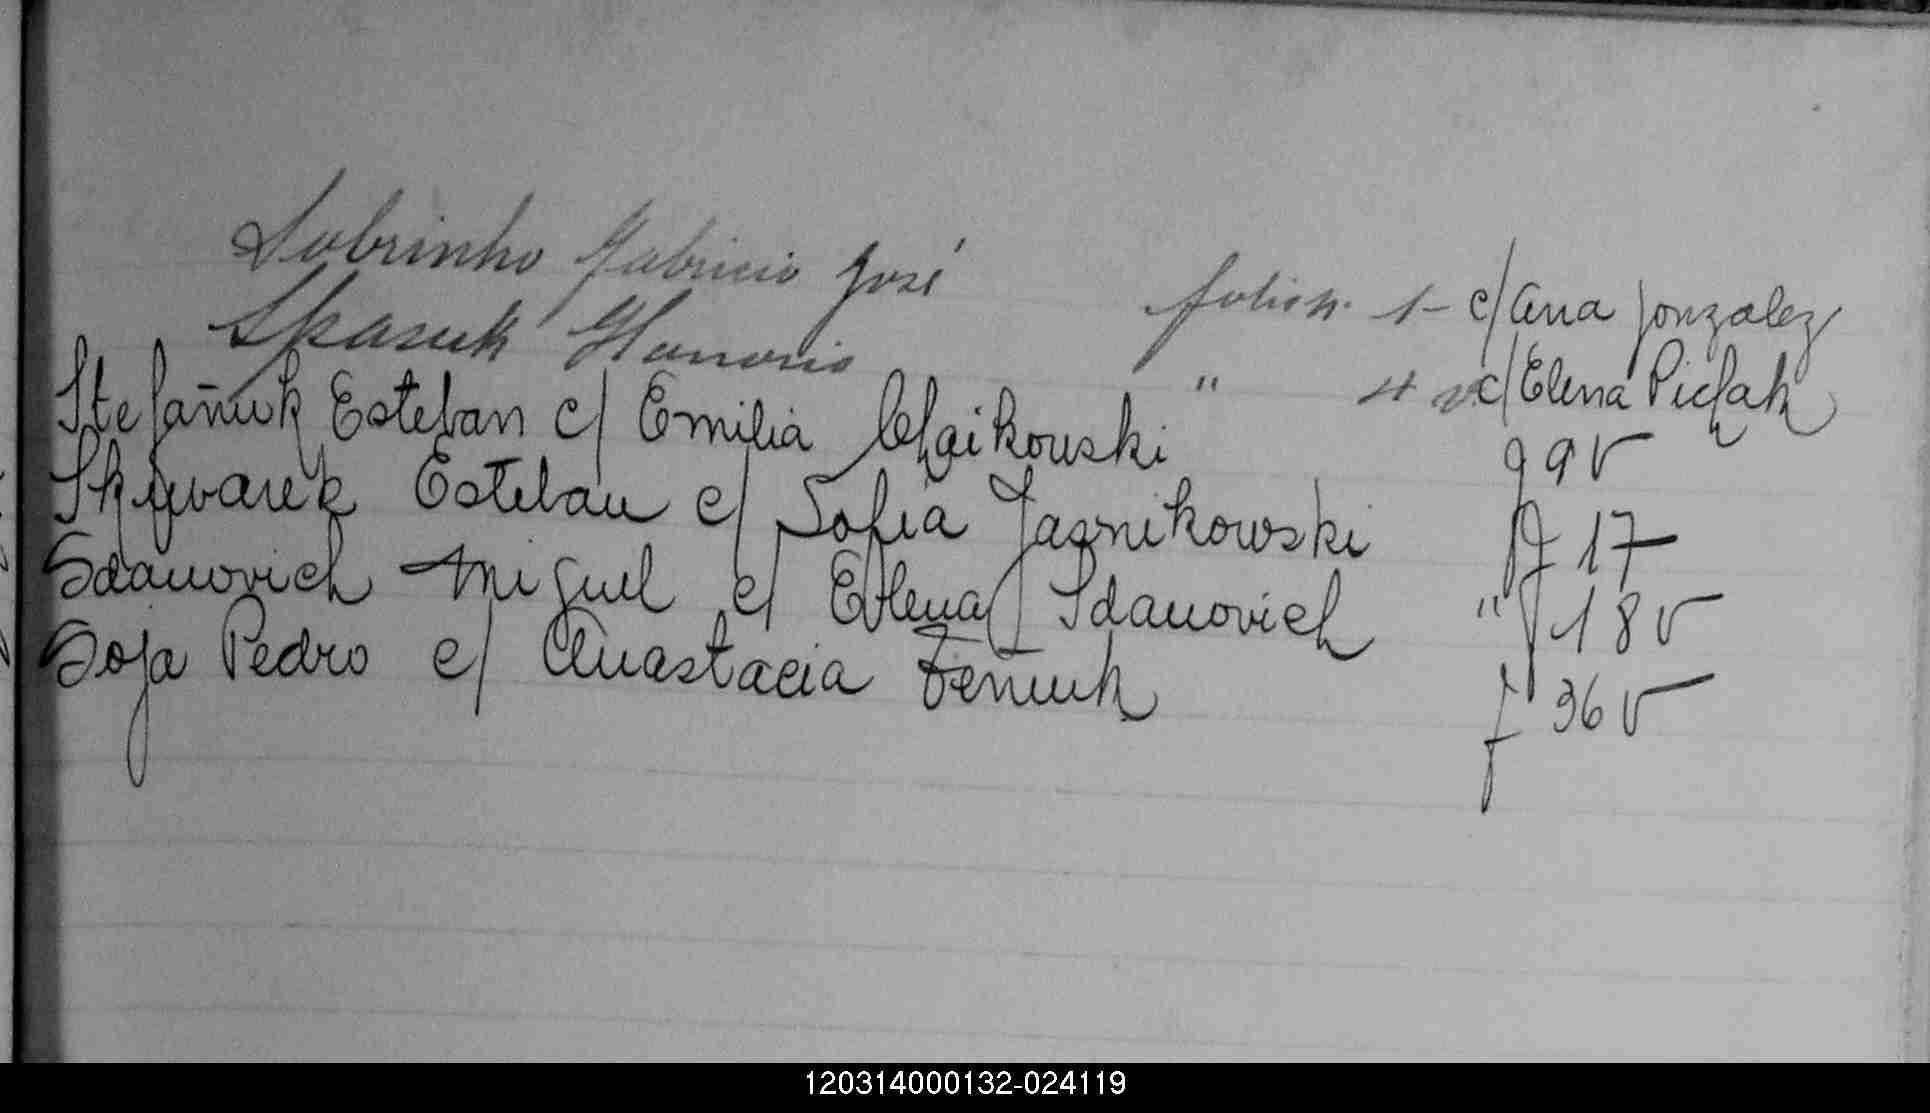 Sobrinho Gabricio José folio n. 1- c/ Ana Gonzalez
Spasuk Honorio " 4 v c/ Elena Pichak
Stefañuk Esteban c/ Emilia Chaikouski 9 v
Skywarek Esteban c/ Sofia Jasnikowski f 17
Sdanovich Miguel c/ Elena Sdanovich " f 18 v
Soja Pedro c/ Anastacia Feniuk f 36 v
120314000132-024119